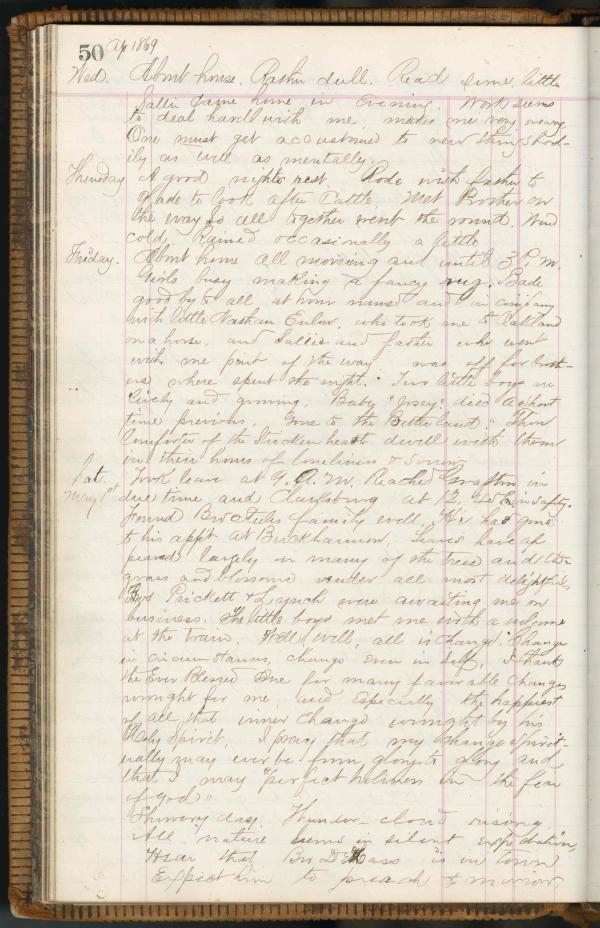 50 Ap 1869
Wed. About house. Rather dull. Read some little
Sallie came home in Evening. Work seems
to deal hard with me, makes me very weary
One must get accustomed to new things bod-
ily as well as mentally.
Thursday A good nights rest. Rode with father to
Glade to look after Cattle. Met Brother on
the way so all together went the round. Wind
cold. Rained occasionally a little
Friday. About home all morning and until 3 P.M.
Girls busy making a fancy rug. Bade
good by to all at hour named and in company
with little Nathan Enlow, who took me to Oakland
on a horse, and Sallie and father who went
with me part of the way was off for broth-
ers where spent the night. Two little boys are
lively and growing. Baby "Josey" died a short
time previous. Gone to the Better land. Thou
Comforter of the Stricken heart dwell with them
in their hours of loneliness & sorrow
Sat. Took leave at 9. A.M. Reached Grafton in
May 1st due time and Clarksburg at 12, in safety.
Found Bro family well. He has gone
to his appt at Buckhannon. Leaves have ap
peared largely on many of the trees and the
grass and blossoms render all most delightful,
Bros Prickett & Lynch were awaiting me on
business. The little boys met me with a welcome
at the train. Well, well, all is change. Change
in circumstances, change even in self. I thank
the Ever Blessed One for many favorable changes
wrought for me, and Especially the happiest
of all that inner change wrought by his
Holy Spirit. I pray that my change Spirit-
ually may ever be from glory to glory and
that I may "perfect holiness in the fear
of God"
Showery day. Thunder-cloud rising
All nature seems in silent expectation,
Hear that Bro is in town
Expect him to preach to morrow.